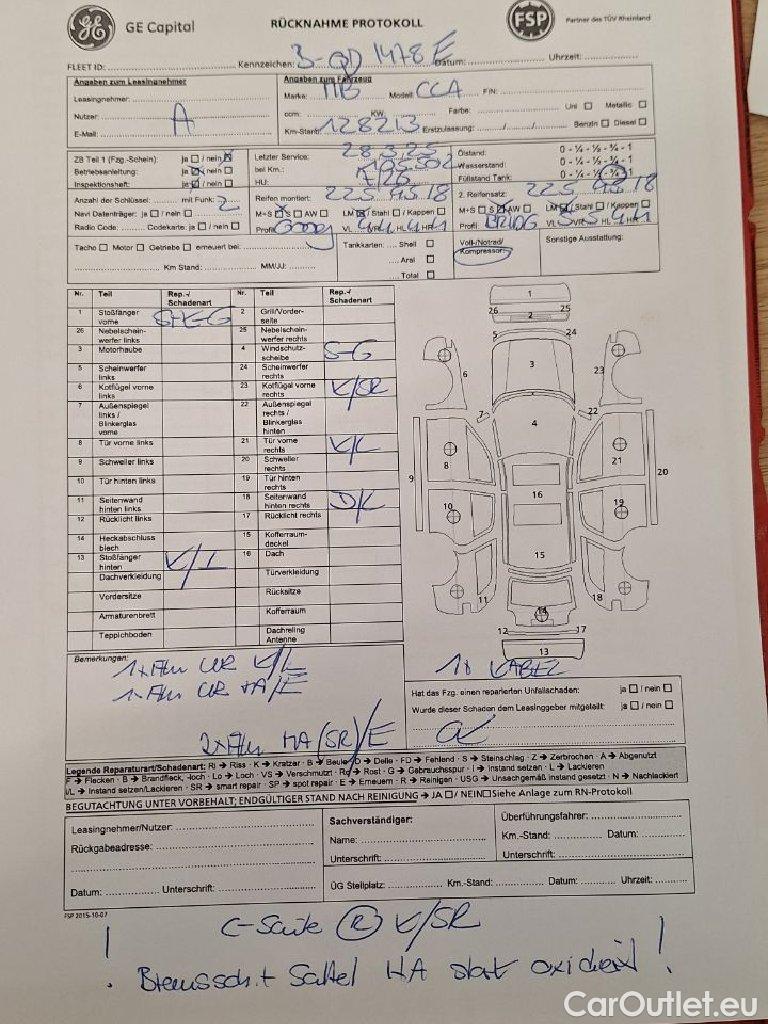 GE Capital
RÜCKNAHME PROTOKOLL
FSP
Partner des TÜV Rheinland
FLEET ID:
Kennzeichen: B-QD 1478E
Datum:
Uhrzeit:
Angaben zum Leasingnehmer
Leasingnehmer:
Nutzer: A
E-Mail:
Angaben zum Fahrzeug
Marke: MB Modell: CLA FIN:
ccm: KW: Farbe: Uni Metallic
Km-Stand: 128213 Erstzulassung: / / Benzin Diesel
ZB Teil 1 (Fzg.-Schein): ja / nein
Betriebsanleitung: ja / nein
Inspektionsheft: ja / nein
Letzter Service: 28.3.25
bei Km.:
HU: 7/26
Ölstand: 0 - ¼ - ½ - ¾ - 1
Wasserstand: 0 - ¼ - ½ - ¾ - 1
Füllstand Tank: 0 - ¼ - ½ - ¾ - 1
Anzahl der Schlüssel: mit Funk: 2
Navi Datenträger: ja / nein
Radio Code: Codekarte: ja / nein
Reifen montiert: 225 45 18
M+S S AW LM / Stahl / Kappen
Profil: Goody VL 4 VR 4 HL 4 HR 4
2. Reifensatz: 225 45 18
M+S S AW LM / Stahl / Kappen
Profil: BRIDG VL 5 VR 5 HL 4 HR 4
Tacho Motor Getriebe erneuert bei:
Km Stand: MM/JJ:
Tankkarten: Shell
Aral
Total
Voll-/Notrad/
Kompressor:
Sonstige Ausstattung:
Nr. Teil Rep.-/ Schadenart Nr. Teil Rep.-/ Schadenart
1 Stoßfänger vorne S+E-G 2 Grill/Vorderseite
26 Nebelscheinwerfer links 25 Nebelscheinwerfer rechts
3 Motorhaube 4 Windschutzscheibe S-G
5 Scheinwerfer links 24 Scheinwerfer rechts
6 Kotflügel vorne links 23 Kotflügel vorne rechts K/SR
7 Außenspiegel links / Blinkerglas vorne 22 Außenspiegel rechts / Blinkerglas hinten
8 Tür vorne links 21 Tür vorne rechts K/L
9 Schweller links 20 Schweller rechts
10 Tür hinten links 19 Tür hinten rechts
11 Seitenwand hinten links 18 Seitenwand hinten rechts D/L
12 Rücklicht links 17 Rücklicht rechts
14 Heckabschluss blech 15 Kofferraumdeckel
13 Stoßfänger hinten K/L 16 Dach
Dachverkleidung Türverkleidung
Vordersitze Rücksitze
Armaturenbrett Kofferraum
Teppichboden Dachreling Antenne
1
26 2 25
5 24
3
6 23
7 22
4
8 21
9 20
16
10 19
15
11 18
14
12 17
13
Bemerkungen:
1x Alu VR K/L
1x Alu VR HA/E
2x Alu HA (SR)/E
1x KABEL
Hat das Fzg. einen reparierten Unfallschaden: ja / nein
Wurde dieser Schaden dem Leasinggeber mitgeteilt: ja / nein
Legende Reparaturart/Schadenart: RI → Riss · K → Kratzer · B → Beule · D → Delle · FD → Fehlend · S → Steinschlag · Z → Zerbrochen · A → Abgenutzt
F → Flecken · B → Brandfleck, -loch · Lo → Loch · VS → Verschmutzt · Ro → Rost · G → Gebrauchsspur · I → Instand setzen · L → Lackieren
I/L → Instand setzen/Lackieren · SR → smart repair · SP → spot repair · E → Erneuern · R → Reinigen · USG → Unsachgemäß instand gesetzt · N → Nachlackiert
BEGUTACHTUNG UNTER VORBEHALT; ENDGÜLTIGER STAND NACH REINIGUNG → JA / NEIN Siehe Anlage zum RN-Protokoll
Leasingnehmer/Nutzer:
Rückgabeadresse:
Datum: Unterschrift:
Sachverständiger:
Name:
Unterschrift:
Überführungsfahrer:
Km.-Stand: Datum:
Unterschrift:
ÜG Stellplatz: Km.-Stand: Datum: Uhrzeit:
FSP 2015-10-07
C-Säule (R) K/SR
! Bremssch. + Sattel HA stark oxidiert !
CarOutlet.eu